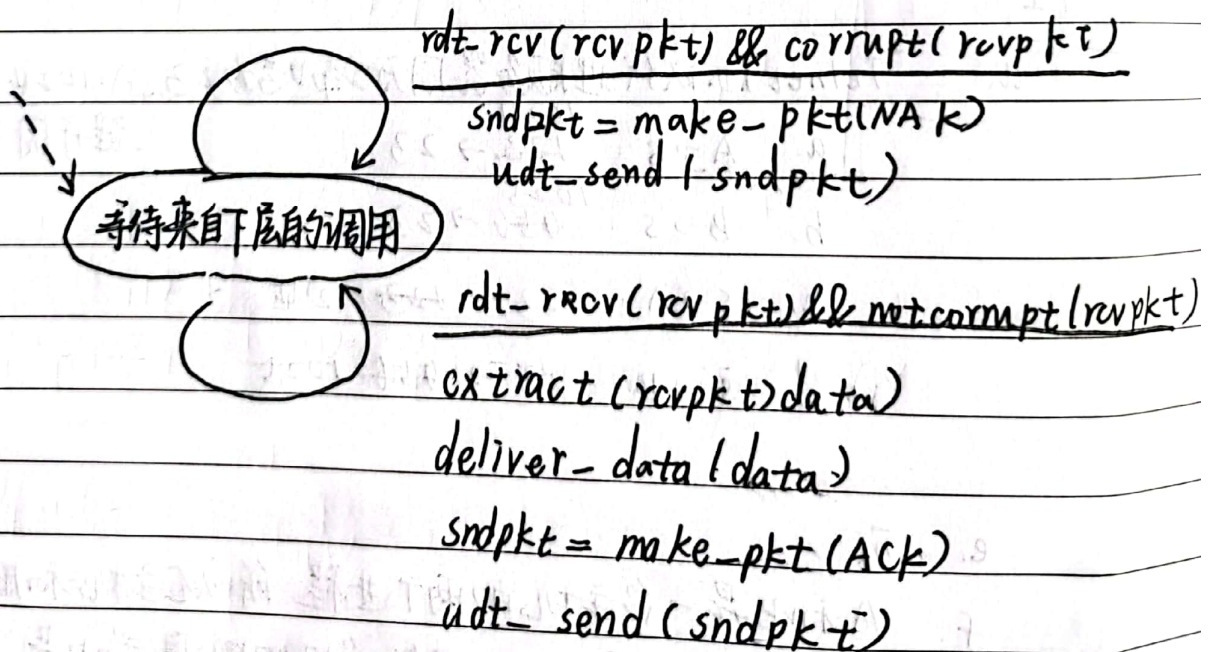 rdt_rcv(rcvpkt) && corrupt(rcvpkt)
sndpkt = make_pkt(NAK)
udt_send(sndpkt)
等待来自下层的调用
rdt_rrcv(rcvpkt) && notcorrupt(rcvpkt)
extract(rcvpkt)data)
deliver_data(data)
sndpkt = make_pkt(ACK)
udt_send(sndpkt)